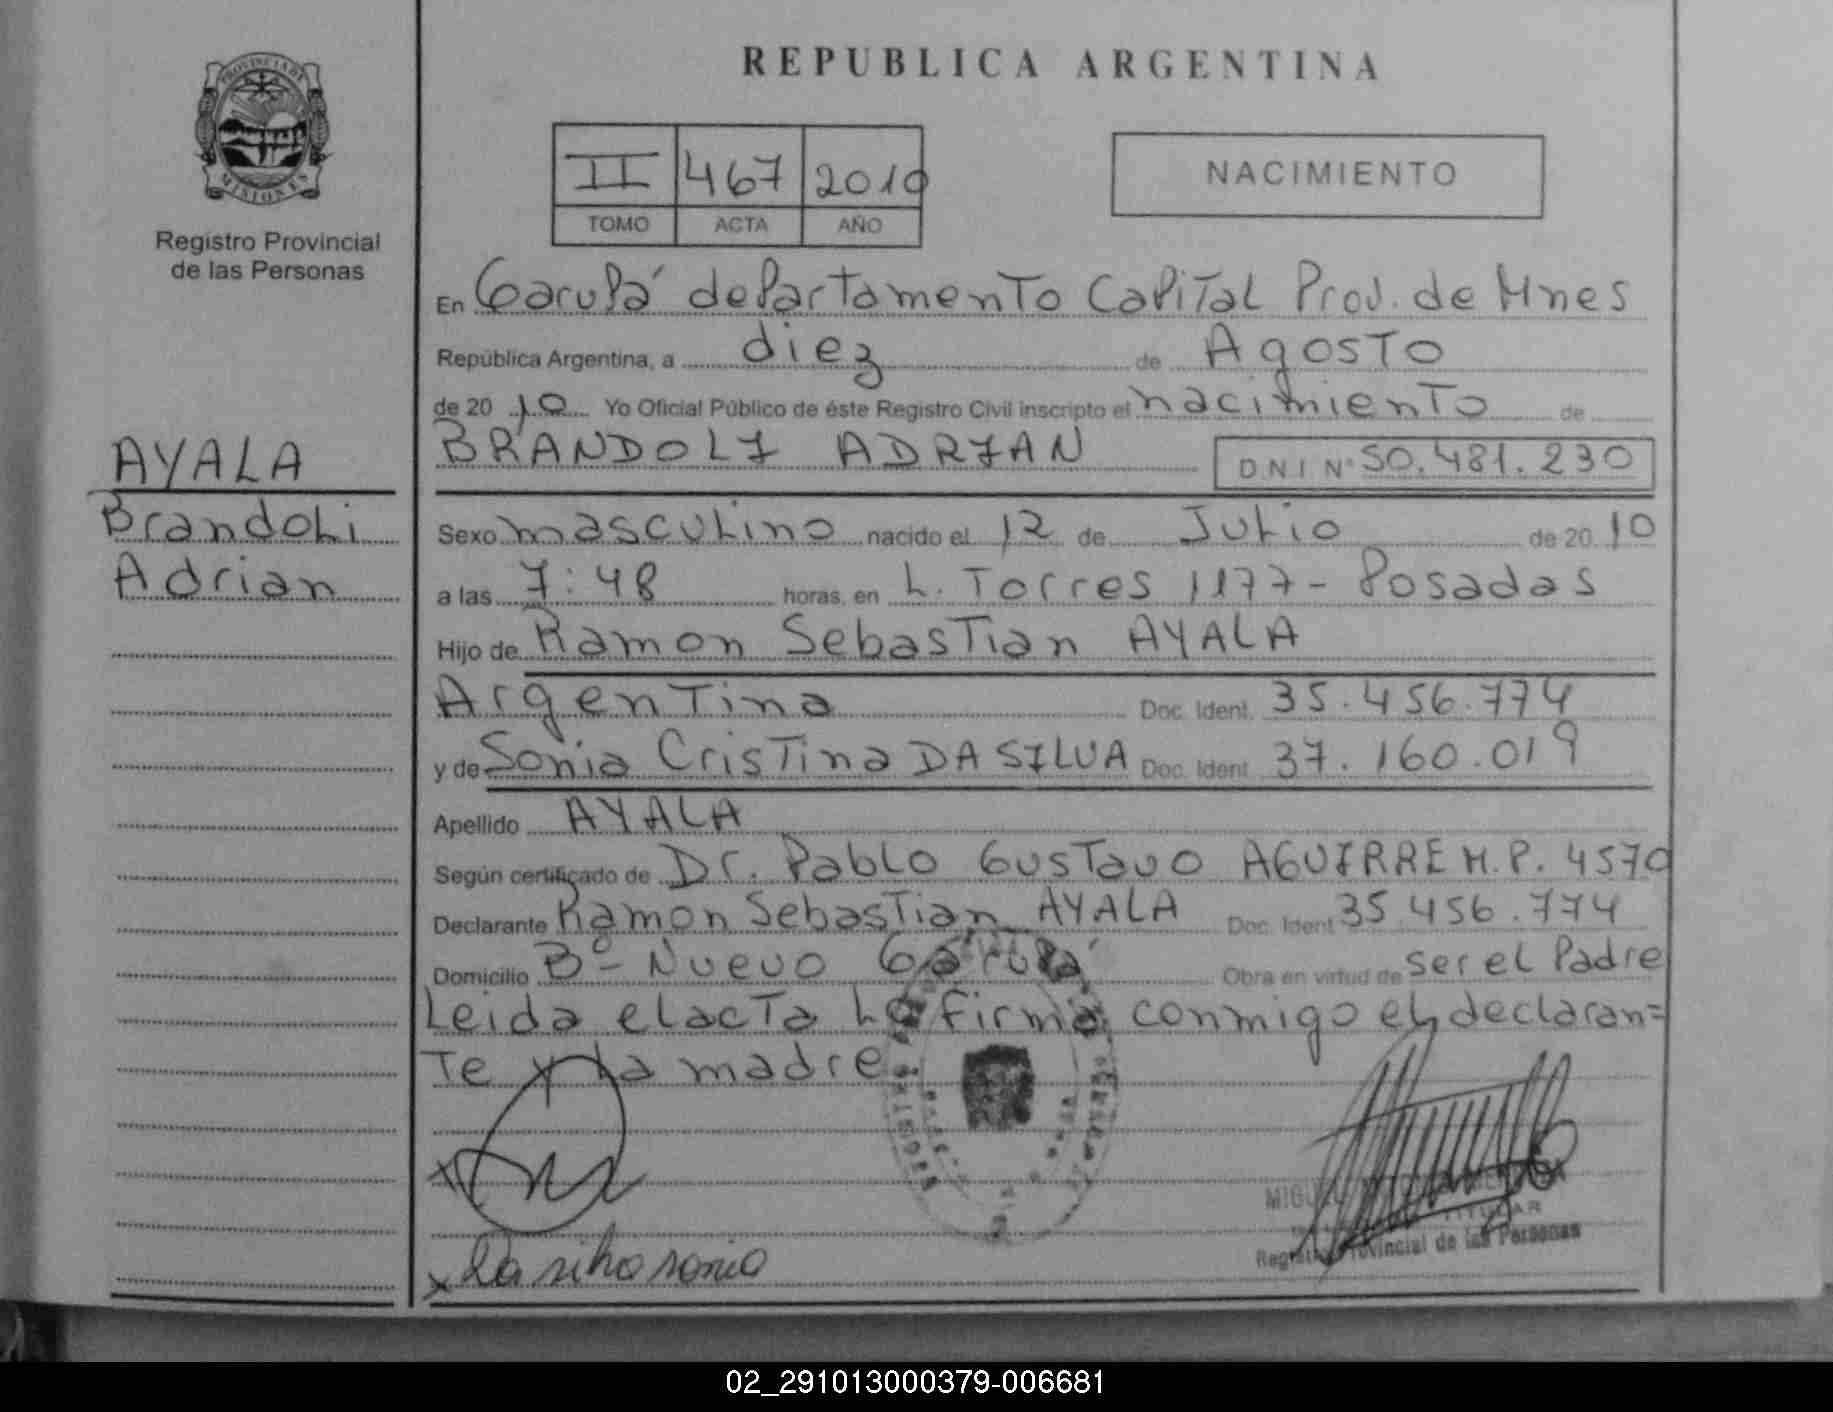 REPUBLICA ARGENTINA
PROVINCIA DE
MISIONES
Registro Provincial
de las Personas
II 467 2010
TOMO ACTA AÑO
NACIMIENTO
En Garupá departamento Capital Prov. de Mnes
República Argentina, a diez de Agosto
de 20 10 Yo Oficial Público de éste Registro Civil inscripto el nacimiento de
BRANDOLI ADRIAN DNI Nº 50.481.230
AYALA
Brandoli
Adrian
Sexo masculino nacido el 12 de Julio de 20 10
a las 7:48 horas, en L. Torres 1177 - Posadas
Hijo de Ramon Sebastian AYALA
Argentina Doc. Ident. 35.456.774
y de Sonia Cristina DA SILVA Doc. Ident. 37.160.019
Apellido AYALA
Según certificado de Dr. Pablo Gustavo AGUIRRE M.P. 4570
Declarante Ramon Sebastian AYALA Doc. Ident 35.456.774
Domicilio Bº- Nuevo Garupá Obra en virtud de ser el Padre
Leida el acta la firma conmigo el declaran=
te y la madre
MISIONES
TITULAR
Registro Provincial de las Personas
x Da silva sonia
02_291013000379-006681